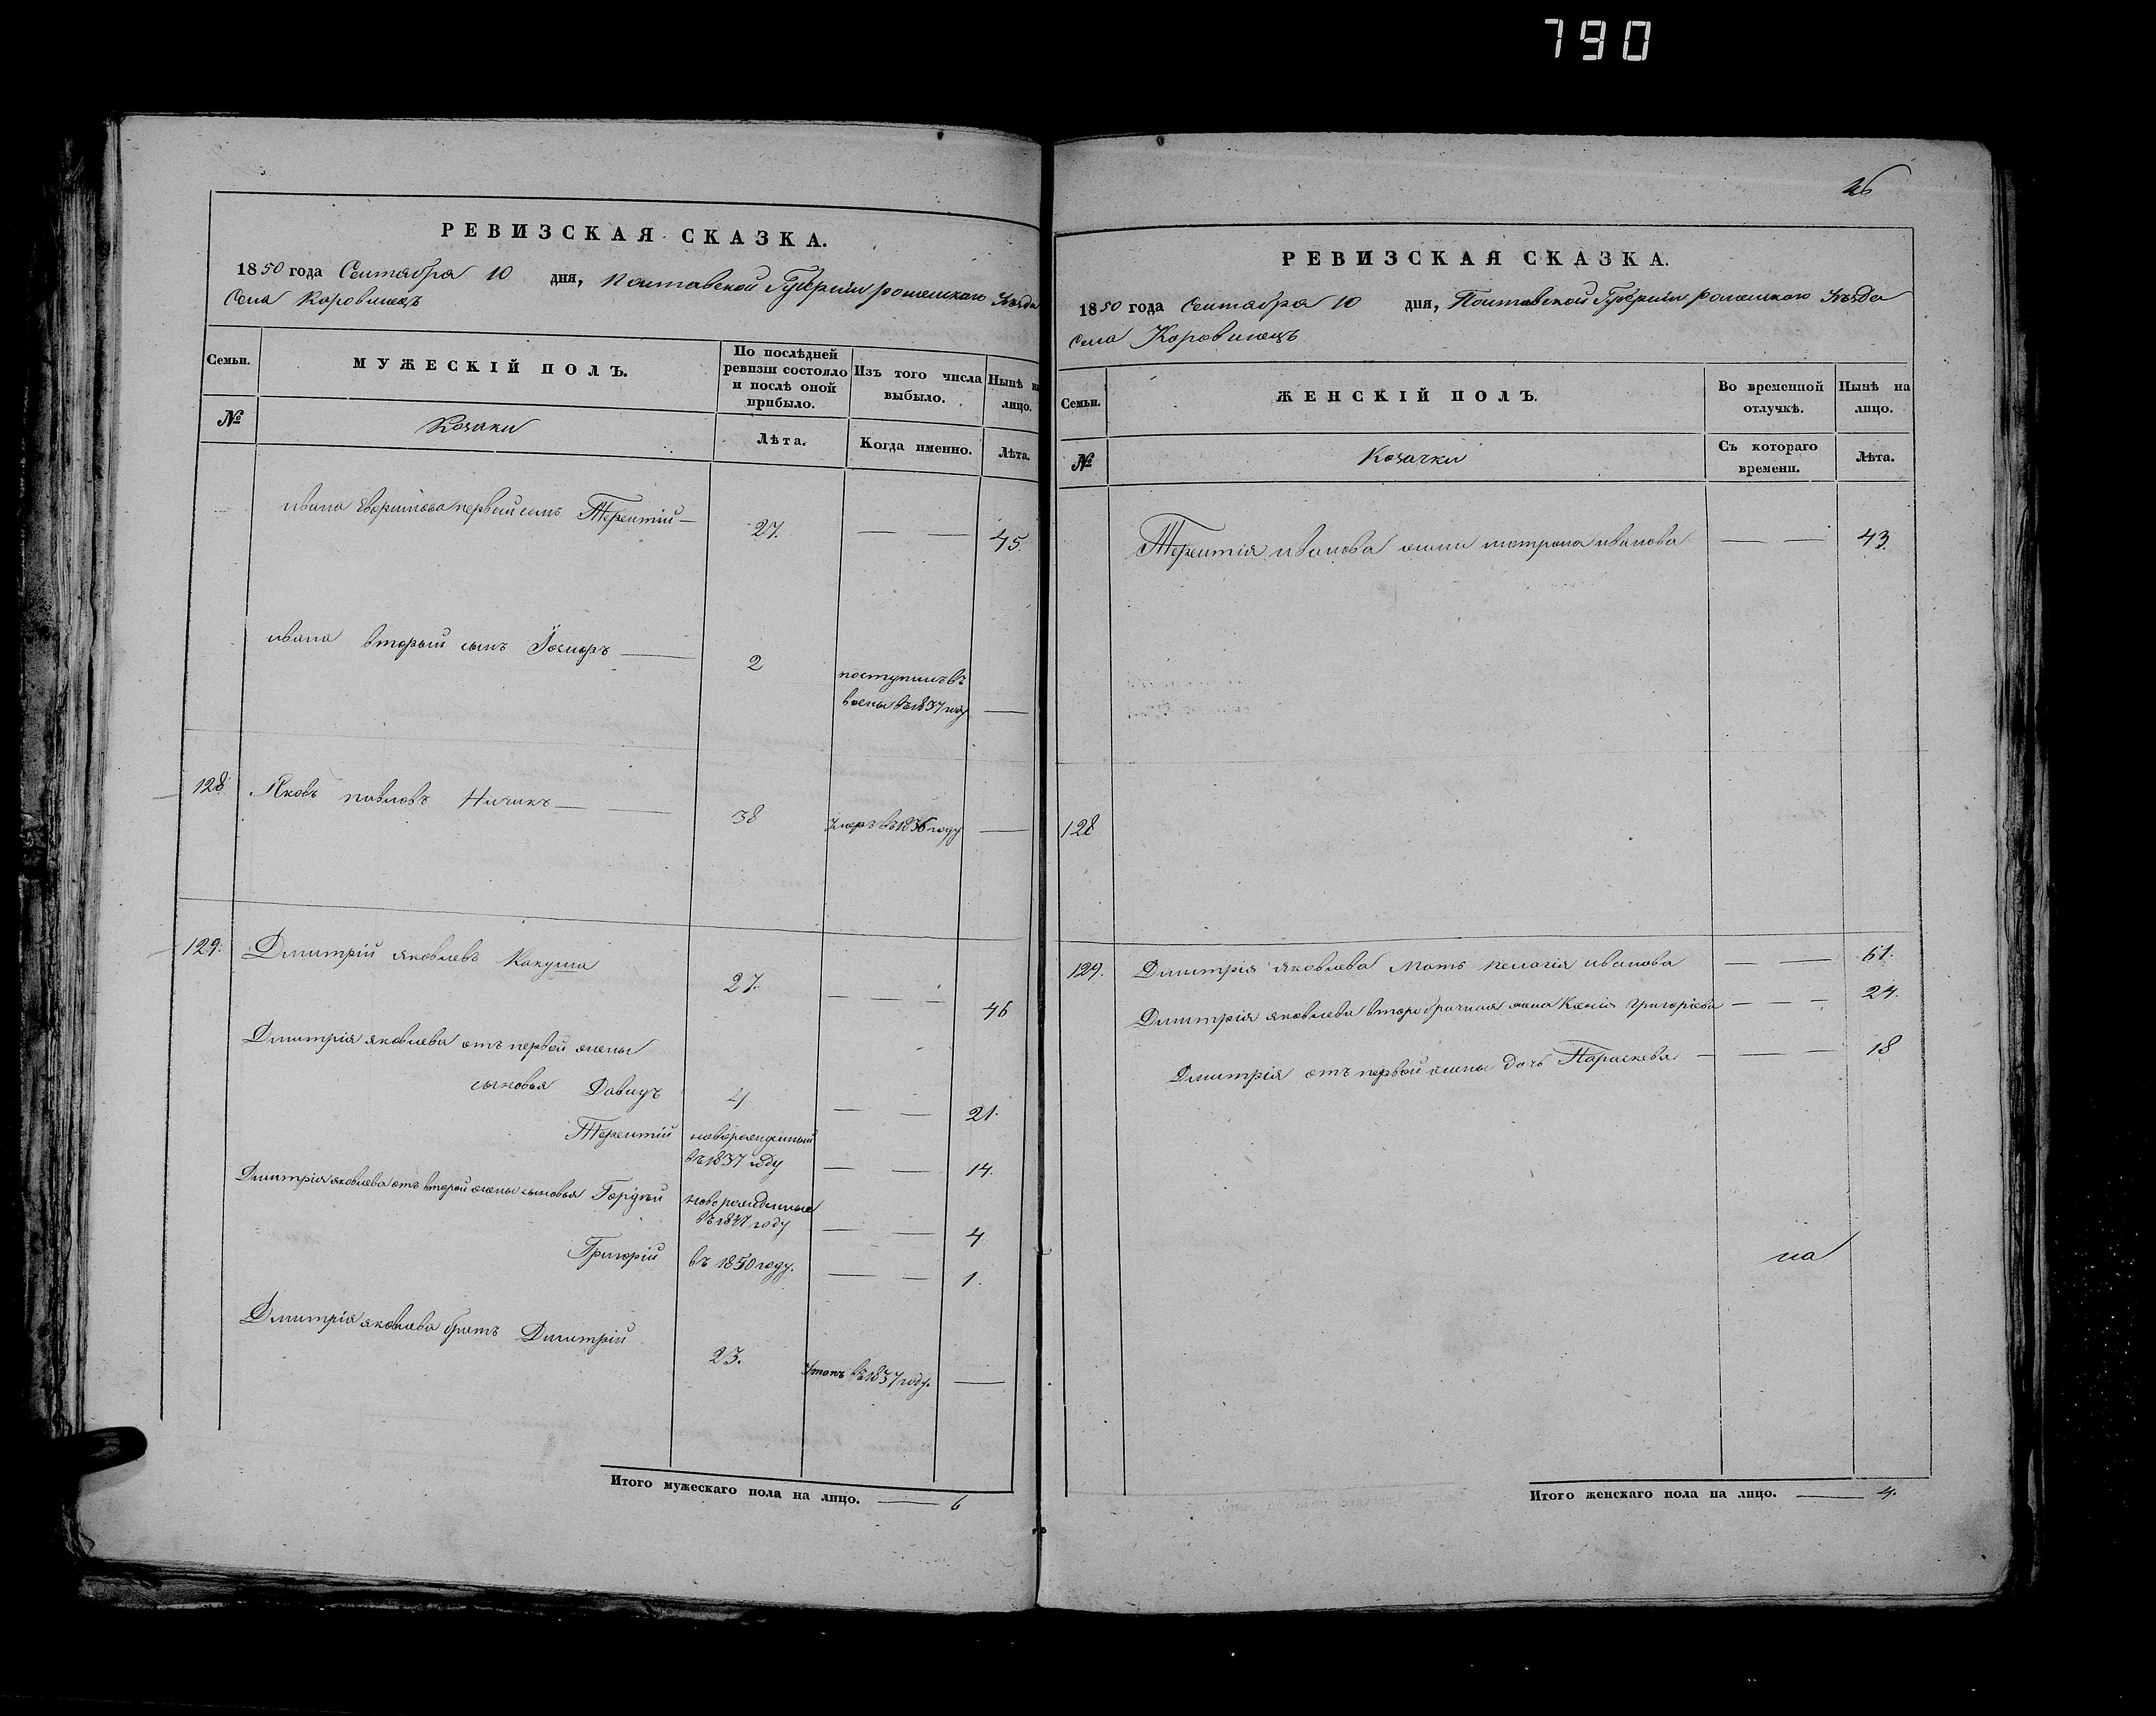 790
РЕВИЗСКАЯ СКАЗКА.
1850 года Сентября 10 дня, Полтавской Губерніи роменскаго Уѣзда
Села Коровинецъ
Семьи.
МУЖЕСКІЙ ПОЛЪ.
По послѣдней ревизіи состояло и послѣ оной прибыло.
Изъ того числа выбыло.
Нынѣ на лицо.
№
Козаки
Лѣта.
Когда именно.
Лѣта.
ивана первый сынъ Терентій — 27. — — 45.
ивана вторый сынъ — 2
поступилъ въ
въ 1837 году —
128 Яковъ павловъ Ничикъ — — 38 Умеръ въ 1836 году —
129. Дмитрій яковлевъ Кокуша 27. — — — 46
Дмитрія яковлева отъ первой жены
сыновья Давидъ 4 — — 21.
Терентій новорожденный
въ 1837 году — — 14.
Дмитрія яковлева отъ второй жены сыновья Гордѣй новорожденные
въ 1847 году — — 4
Григорій въ 1850 году. — — 1.
Дмитрія яковлева братъ Дмитрій 23. Утопъ въ 1837 году. —
Итого мужескаго пола на лицо. — 6
26
РЕВИЗСКАЯ СКАЗКА.
1850 года Сентября 10 дня, Полтавской Губерніи роменскаго Уѣзда
села Коровинецъ
Семьи.
ЖЕНСКІЙ ПОЛЪ.
Во временной отлучкѣ.
Нынѣ на лицо.
№
Козачки
Съ котораго времени.
Лѣта.
Терентія иванова жена матрона иванова — — 43.
128
129. Дмитрія яковлева Мать пелагія иванова — — 61.
Дмитрія яковлева второбрачная жена Ксенія григоріева — — — 24.
Дмитрія отъ первой жены дочь Параскева — — — 18
на
Итого женскаго пола на лицо. — 4.